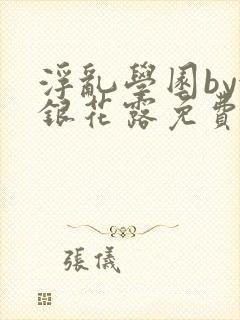 浮亂學園by
銀花露免費
張儀